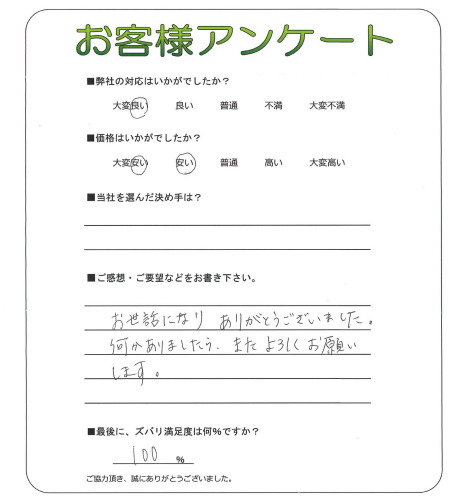 お客様アンケート
■弊社の対応はいかがでしたか？
大変良い 良い 普通 不満 大変不満
■価格はいかがでしたか？
大変安い 安い 普通 高い 大変高い
■当社を選んだ決め手は？
■ご感想・ご要望などをお書き下さい。
お世話になり ありがとうございました。
何かありましたら、またよろしくお願い
します。
■最後に、ズバリ満足度は何%ですか？
100 %
ご協力頂き、誠にありがとうございました。